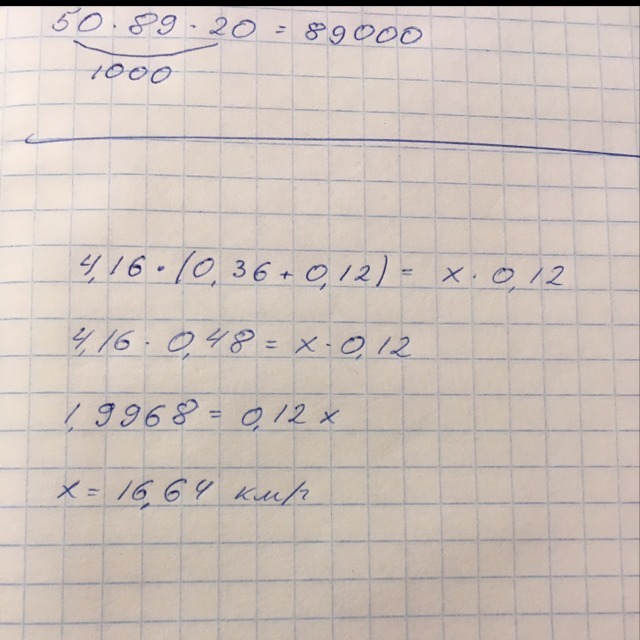 50 · 89 · 20 = 89000
1000
4,16 · (0,36 + 0,12) = x · 0,12
4,16 · 0,48 = x · 0,12
1,9968 = 0,12 x
x = 16,64 км/г